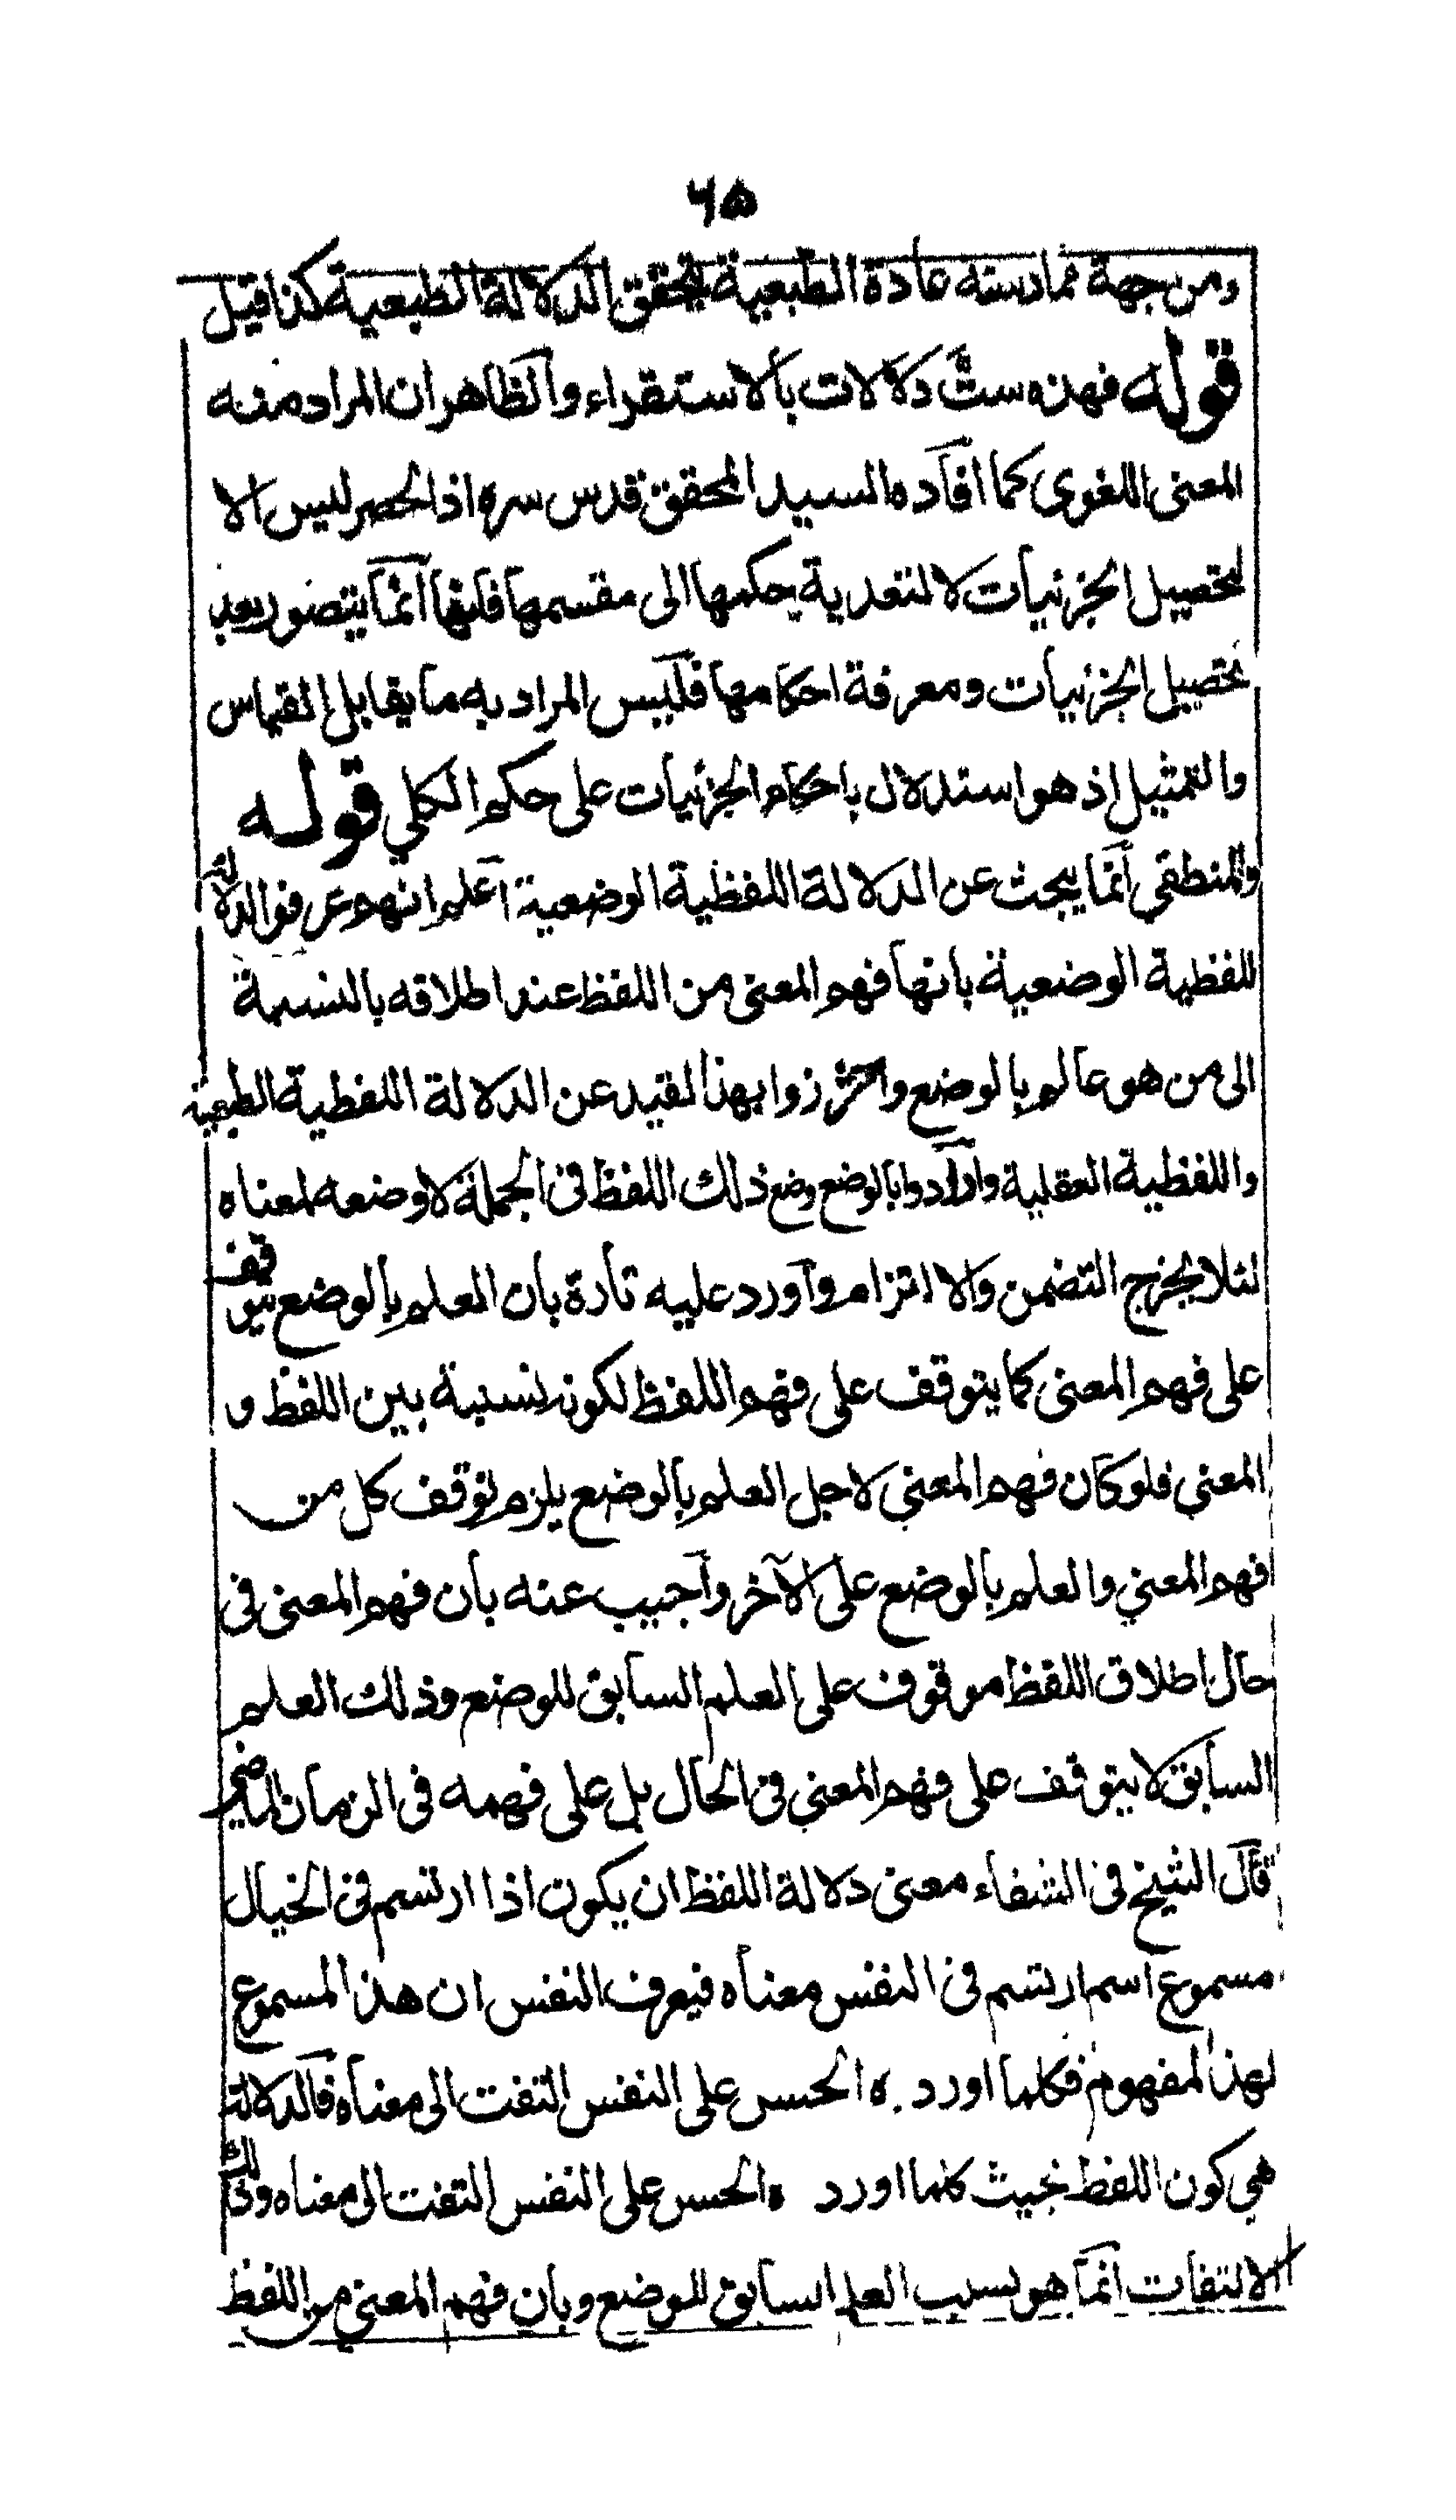 ۶۵
ومن جهة ممارسته عادة الطبعية يتحقق الدلالة الطبعية كذا قيل
قوله فهذه ست دلالات بالاستقراء والظاهر ان المراد منه
المعنى اللغوى كما افاده السيد المحقق قدس سره اذ الحصر ليس الا
لتحصيل الجزئيات لا لتعدية حكمها الى مقسمها فانها انما يتصور بعد
تحصيل الجزئيات ومعرفة احكامها فليس المراد به ما يقابل القياس
والتمثيل اذ هو استدلال باحكام الجزئيات على حكم الكلي قوله
والمنطقي انما يبحث عن الدلالة اللفظية الوضعية اعلم انهم عرفوا الدلالة
اللفظية الوضعية بانها فهم المعنى من اللفظ عند اطلاقه بالنسبة
الى من هو عالم بالوضع واحترزوا بهذا القيد عن الدلالة اللفظية الطبعية
واللفظية العقلية وارادوا بالوضع وضع ذلك اللفظ فى الجملة لا وضعه لمعناه
لئلا يخرج التضمن والالتزام واورد عليه تارة بان العلم بالوضع يتوقف
على فهم المعنى كما يتوقف على فهم اللفظ لكونه نسبة بين اللفظ و
المعني فلو كان فهم المعني لاجل العلم بالوضع يلزم توقف كل من
فهم المعني والعلم بالوضع على الآخر واجيب عنه بان فهم المعنى فى
حال اطلاق اللفظ موقوف على العلم السابق للوضع وذلك العلم
السابق لا يتوقف على فهم المعني فى الحال بل على فهمه فى الزمان الماضي
قال الشيخ فى الشفاء معنى دلالة اللفظ ان يكون اذا ارتسم فى الخيال
مسموع اسم ارتسم فى النفس معناه فيعرف النفس ان هذا المسموع
لهذا المفهوم فكلما اورده الحس على النفس التفت الى معناه فالدلالة
هي كون اللفظ بحيث كلما اورده الحس على النفس التفت الى معناه وذلك
الالتفات انما هو بسبب العلم السابق للوضع وبان فهم المعني من اللفظ